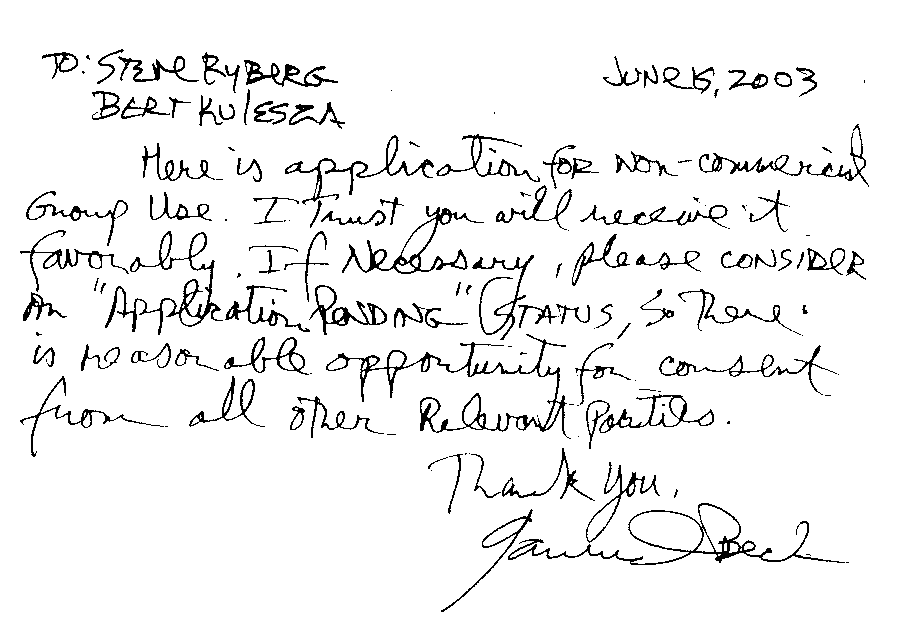 TO: STEVE RYBERG JUNE 15, 2003
BERT KULESZA
Here is application for non-commercial
Group Use. I Trust you will receive it
favorably. If Necessary, please CONSIDER
an "Application PENDING" STATUS, So There
is reasonable opportunity for consent
from all other Relevant Parties.
Thank you,
Beck